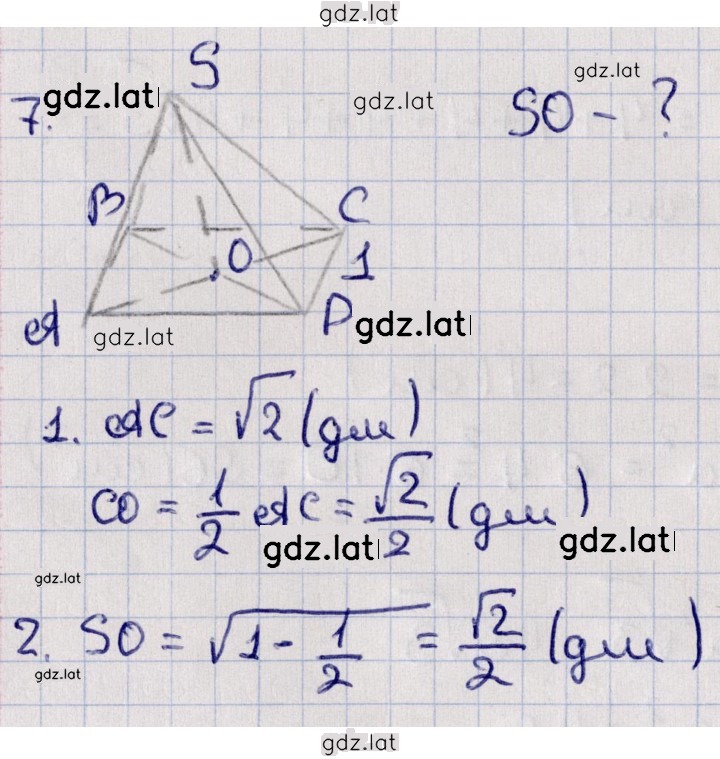 gdz.lat
S
7. gdz.lat gdz.lat SO - ? gdz.lat
B C
O 1
A gdz.lat D gdz.lat
1. AC = √2 (дм)
CO = 1/2 AC = √2/2 (дм)
gdz.lat gdz.lat
gdz.lat
2. SO = √(1 - 1/2) = √2/2 (дм)
gdz.lat
gdz.lat